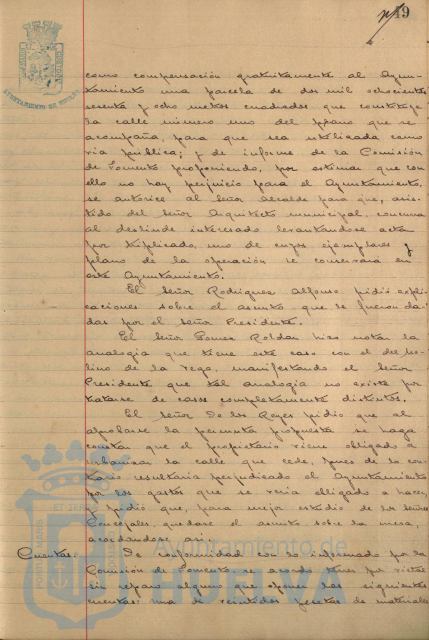 49
AYUNTAMIENTO DE HUELVA
como compensación gratuitamente al Ayun-
tamiento una parcela de dos mil ochocientos
sesenta y ocho metros cuadrados que constituye
la calle número uno del plano que se
acompaña, para que sea utilizada como
vía pública; y de informe de la Comisión
de Fomento proponiendo, por estimar que con
ello no hay perjuicio para el Ayuntamiento,
se autorice al Señor Alcalde para que, asis-
tido del Señor Arquitecto municipal, concurra
al deslinde interesado levantándose acta
por triplicado, uno de cuyos ejemplares y
plano de la operación se conservará en
este Ayuntamiento.
El Señor Rodriguez Alfonso pidió expli-
caciones sobre el asunto que le fueron da-
das por el Señor Presidente.
El Señor Gomez Roldan hizo notar la
analogía que tiene este caso con el del Mo-
lino de la Vega, manifestando el Señor
Presidente que tal analogía no existe por
tratarse de casos completamente distintos.
El Señor De los Reyes pidió que al
aprobarse la permuta propuesta se haga
constar que el propietario viene obligado a
urbanizar la calle que cede, pues de lo con-
trario resultaría perjudicado el Ayuntamiento
por los gastos que se vería obligado a hacer,
y pidió que, para mejor estudio de los Señores
Concejales, quedase el asunto sobre la mesa,
acordándose así.
Cuentas: De conformidad con lo informado por la
Comisión de Fomento, se acordó tener por vistas
sin reparo alguno que oponer las siguientes
cuentas: una de veintidos pesetas de materiales
Ayuntamiento de
HUELVA